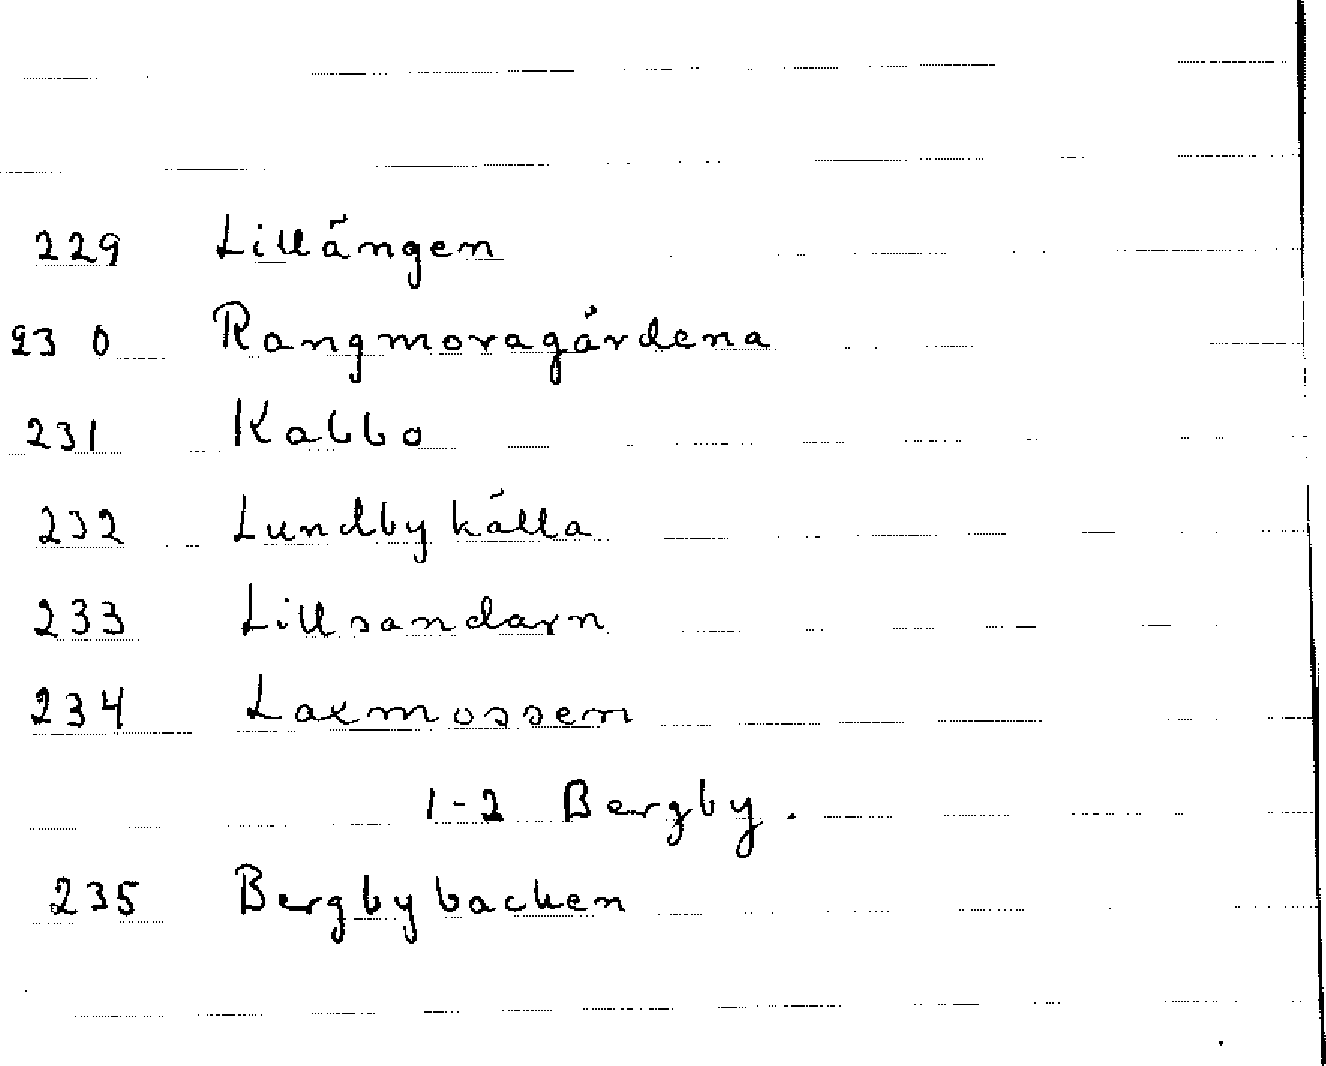 229 Lillängen
230 Rangmoragårdena
231 Kabbo
232 Lundbykälla
233 Lillsandarn
234 Laxmossen
1-2 Bergby.
235 Bergbybacken